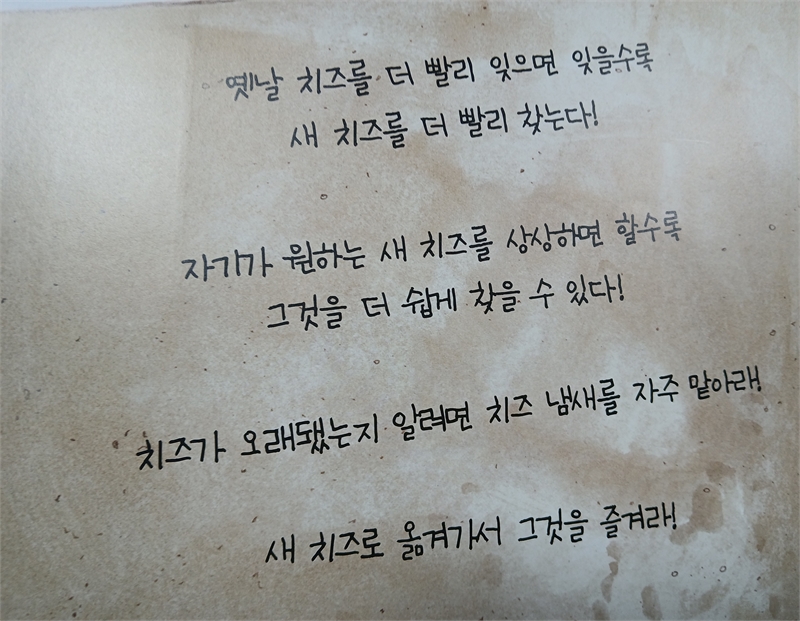 옛날 치즈를 더 빨리 잊으면 잊을수록
새 치즈를 더 빨리 찾는다!
자기가 원하는 새 치즈를 상상하면 할수록
그것을 더 쉽게 찾을 수 있다!
치즈가 오래됐는지 알려면 치즈 냄새를 자주 맡아래!
새 치즈로 옮겨가서 그것을 즐겨래!